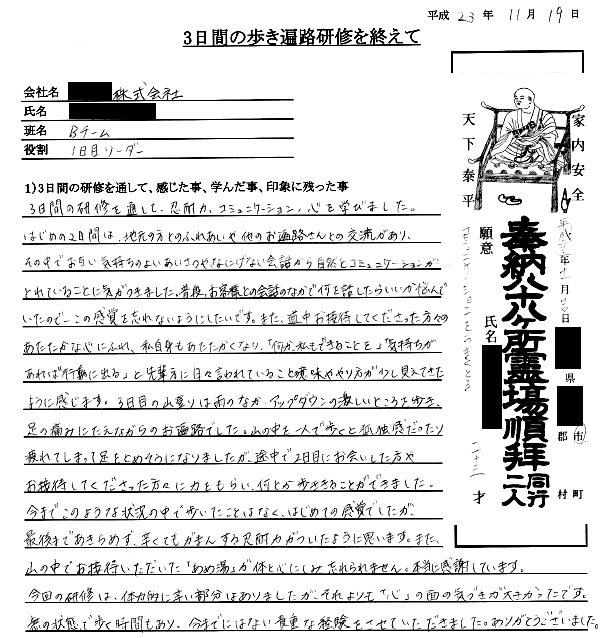 平成 23 年 11 月 19 日
3日間の歩き遍路研修を終えて
会社名 株式会社
氏名
班名 Bチーム
役割 1日目リーダー
1)3日間の研修を通して、感じた事、学んだ事、印象に残った事
3日間の研修を通して、忍耐力、コミュニケーション、心を学びました。
はじめの2日間は、地元の方とのふれあいや他のお遍路さんとの交流があり、
その中でお互い気持ちのよいあいさつやなにげない会話から自然とコミュニケーションが
とれていることに気がつきました。普段、お客様との会話のなかで何を話したらいいか悩んで
いたので、この感覚を忘れないようにしたいです。また、道中お接待してくださった方々の
あたたかな心にふれ、私自身もあたたかくなり、「何か、私もできることを」「気持ちが
あれば行動に出る」と先輩方に日々言われていること意味ややり方が少し見えてきた
ように感じます。3日目の山登りは雨のなか、アップダウンの激しいところを歩き、
足の痛みにたえながらのお遍路でした。山の中を一人で歩くと孤独感だったり
疲れてしまって足をとめそうになりましたが、途中で2日目にお会いした方や
お接待してくださった方々に力をもらい、何とか歩ききることができました。
今までこのような状況の中で歩いたことはなく、はじめての感覚でしたが、
最後まであきらめず、辛くてもがまんする忍耐力がついたように思います。また、
山の中でお接待いただいた「あめ湯」が体と心にしみ忘れられません。本当に感謝しています。
今回の研修は、体力的に辛い部分はありましたが、それよりも「心」の面の気づきが大きかったです。
無の状態で歩く時間もあり、今までにはない貴重な経験をさせていただきました。ありがとうございました。
家内安全
天下泰平
奉納八十八ヶ所霊場順拝
同行二人
願意
氏名
県
市
郡
町
村
才